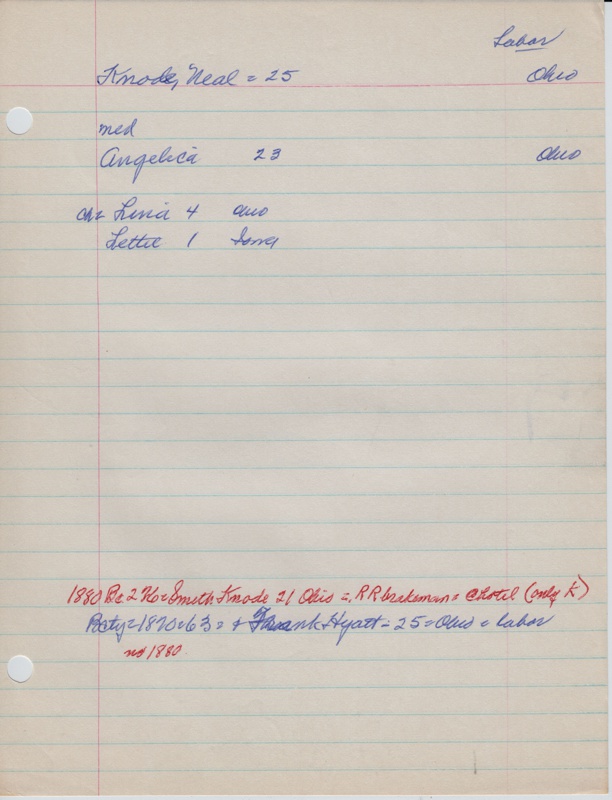 Labor
Knode, Neal = 25 Ohio
med
Angelica 23 Ohio
ch= 4 Ohio
Lettie 1 Iowa
1880 Bc 2 = Smith Knode 21 Ohio = RR brakeman = @ hotel (only K)
Bcty = 1870 = 63 = + Frank Hyatt = 25 = Ohio = labor
no 1880